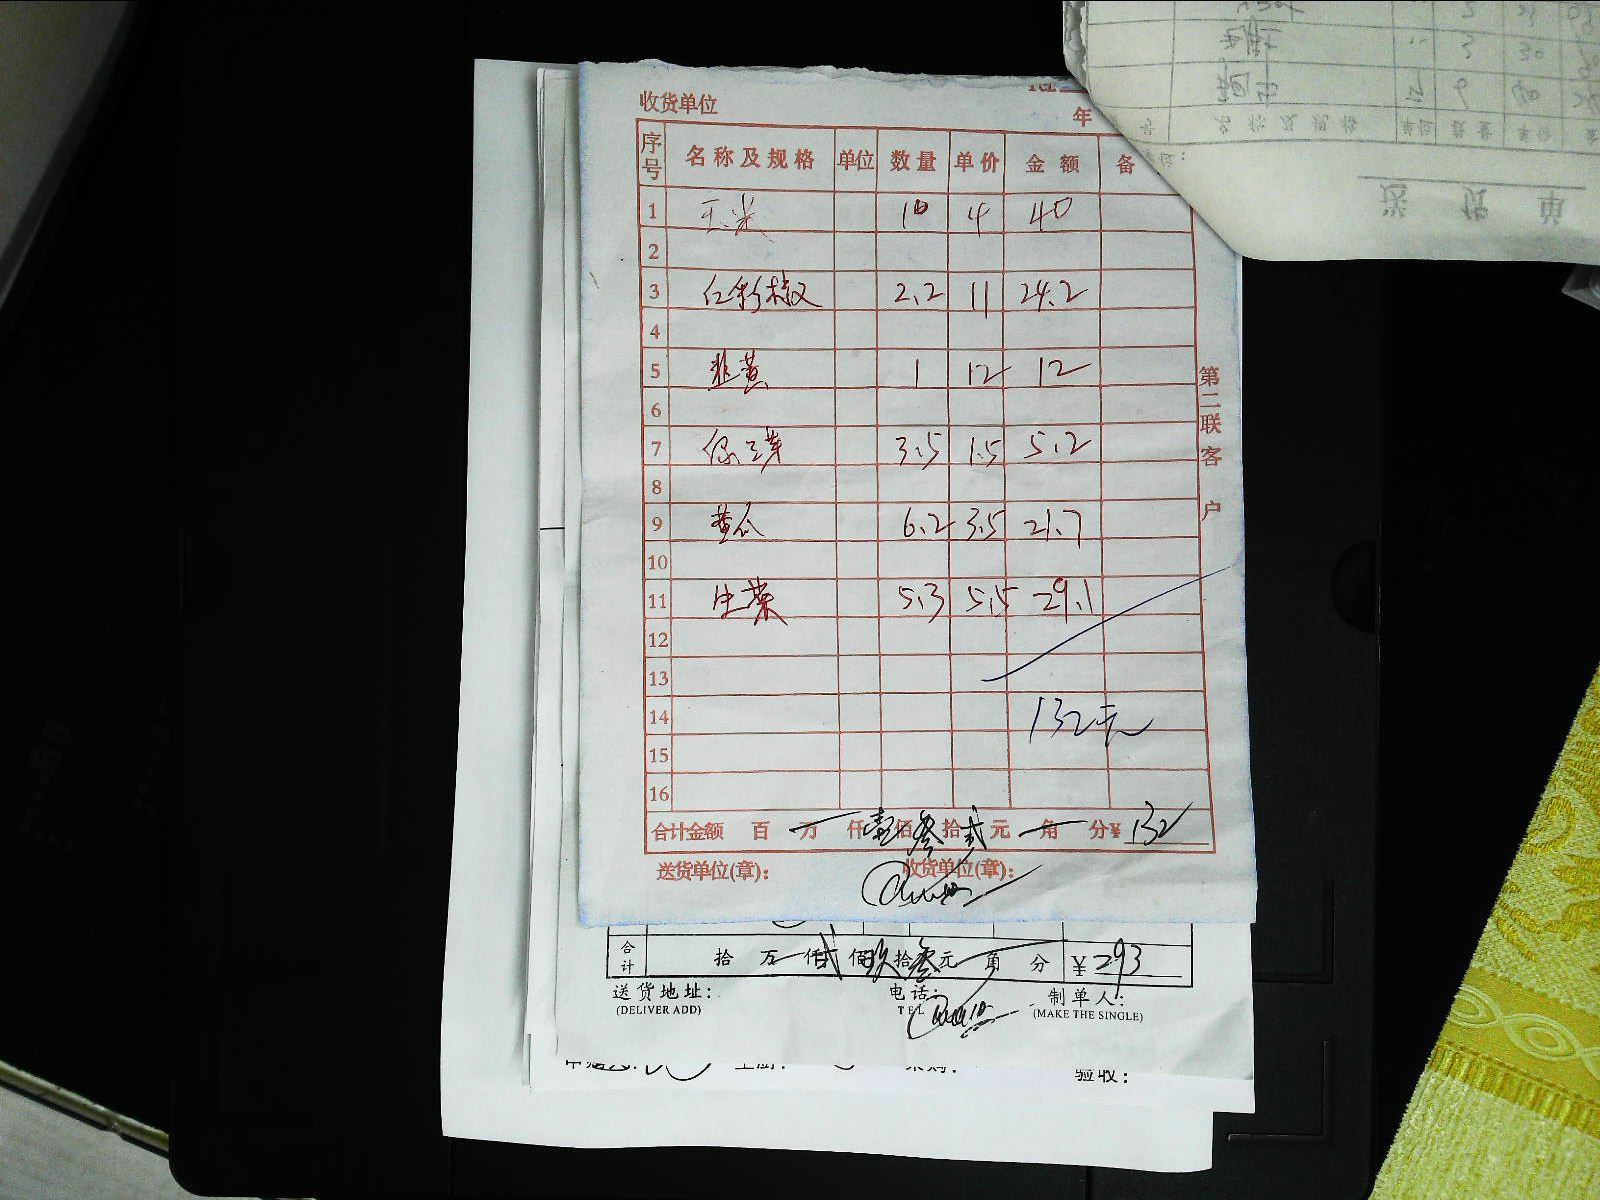 收货单位 年
序号 名称及规格 单位 数量 单价 金额 备
1 玉米 10 4 40
2
3 红彩椒 2.2 11 24.2
4
5 韭黄 1 12 12
6
7 绿豆芽 3.5 1.5 5.2
8
9 黄瓜 6.2 3.5 21.7
10
11 生菜 5.3 5.5 29.1
12
13
14 132元
15
16
合计金额 百 万 仟 壹 佰 叁 拾 贰 元 角 分 ¥ 132
送货单位(章): 收货单位(章):
第二联客户
合计 拾 万 仟 贰 佰 玖 拾 叁 元 角 分 ¥ 293
送货地址: 电话: 制单人:
(DELIVER ADD) TEL (MAKE THE SINGLE)
验收:
送货单
名称及规格 单位 数量 单价